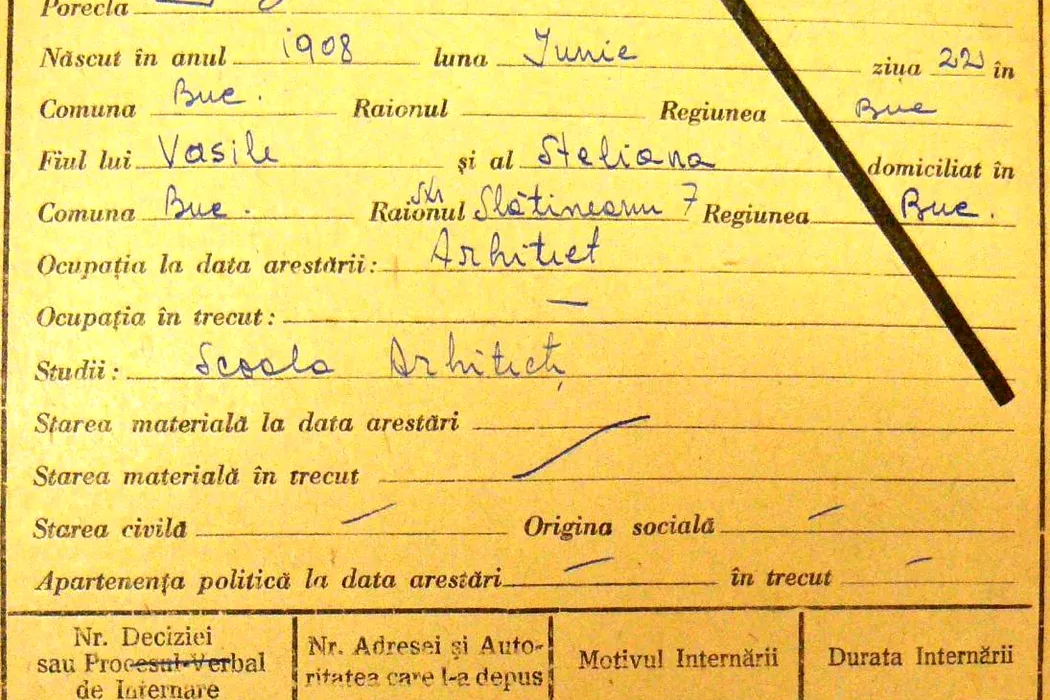 Porecla
Născut în anul 1908 luna Junie ziua 22 în
Comuna Buc. Raionul Regiunea Buc
Fiul lui Vasile și al Steliana domiciliat în
Comuna Buc. Raionul Str Slătineanu 7 Regiunea Buc.
Ocupația la data arestării: Arhitect
Ocupația în trecut: —
Studii: Scoala Arhitect
Starea materială la data arestări
Starea materială în trecut
Starea civilă — Origina socială —
Apartenența politică la data arestări — în trecut —
Nr. Deciziei sau Procesul-Verbal de Internare
Nr. Adresei și Autoritatea care l-a depus
Motivul Internării
Durata Internării